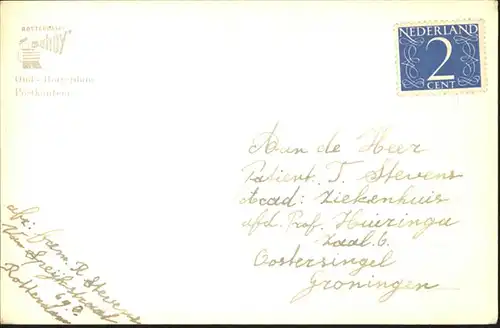 ROTTERDAM
Ahoy'
Oud - Rotterdam
Postkantoor
NEDERLAND
2
CENT
Aan de Heer
Patient T. Stevens
Acad: Ziekenhuis
afd. Prof. Huizinga
Zaal 6
Oostersingel
Groningen
afz: fam. R Stevens
Van Speijkstraat
69a
Rotterdam